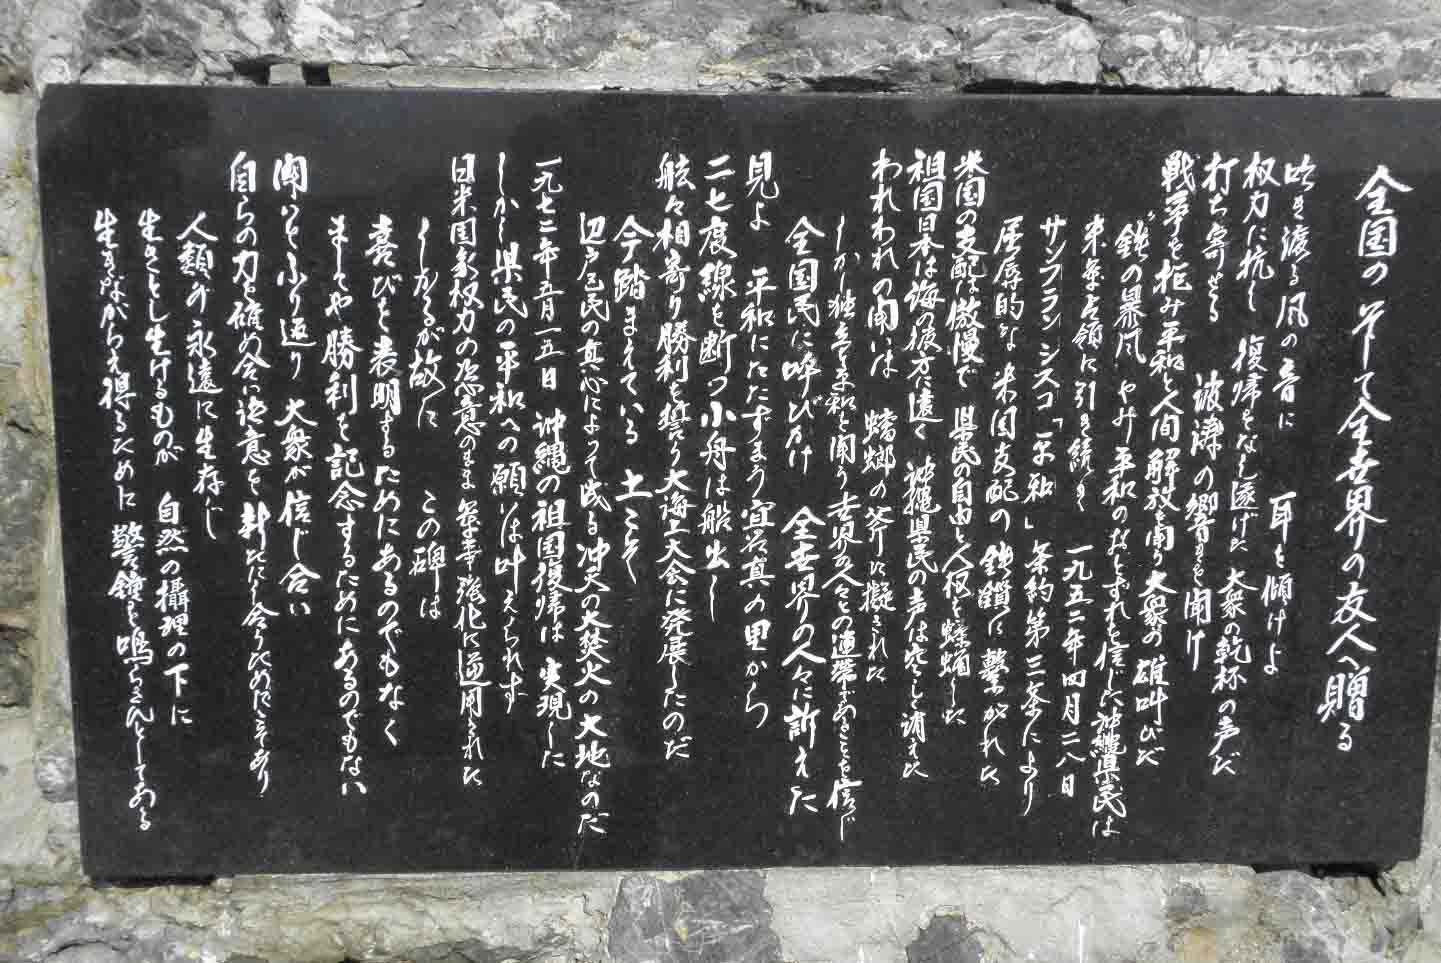 全国のそして全世界の友人へ贈る
吹き渡る風の音に 耳を傾けよ
权力に抗し 復帰をなし遂げた 大衆の乾杯の声だ
打ち寄せる 波濤の響きを聞け
戦争を拒み平和と人間解放を闘う大衆の雄叫びだ
“鉄の暴風”やみ平和のおとずれを信じた沖縄県民は
米軍占領に引き続き 一九五二年四月二八日
サンフランシスコ「平和」条約第三条により
屈辱的な米国支配の鉄鎖に繋がれた
米国の支配は傲慢で 県民の自由と人权を蹂躙した
祖国日本は海の彼方に遠く 沖縄県民の声は空しく消えた
われわれの闘いは 蟷螂の斧に擬された
しかし独立と平和と闘う世界の人々との連帯あることを信じ
全国民に呼びかけ 全世界の人々に訴えた
見よ 平和にたたずまう宜名真の里から
二七度線を断つ小舟は船出し
舷々相寄り勝利を誓う大海上大会に発展したのだ
今踏まえている 土こそ
辺戸区民の真心によって成る沖天の大焚火の大地なのだ
一九七二年五月一五日 沖縄の祖国復帰は 実現した
しかし県民の平和への願いは叶えられず
日米国家权力の恣意のまま軍事強化に逆用された
しかるが故に この碑は
喜びを表明するためにあるのでもなく
ましてや勝利を記念するためにあるのでもない
闘いをふり返り 大衆が信じ合い
自らの力を確め合い決意を新たにし合うためにこそあり
人類が永遠に生存し
生きとし生けるものが 自然の攝理の下に
生きながらえ得るために 警鐘を鳴らさんとしてある